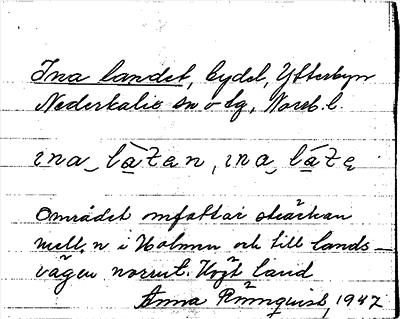 Ina landet, bydel, Ytterbyn
Nederkalix sn o tg, Norrb. l.
ɩna‿làʒan, ɩna‿láʒe
Området omfattar sträckan
mell. n i Holmen och till lands-
vägen norrut. Högt land
Anna Rönnquist, 1947